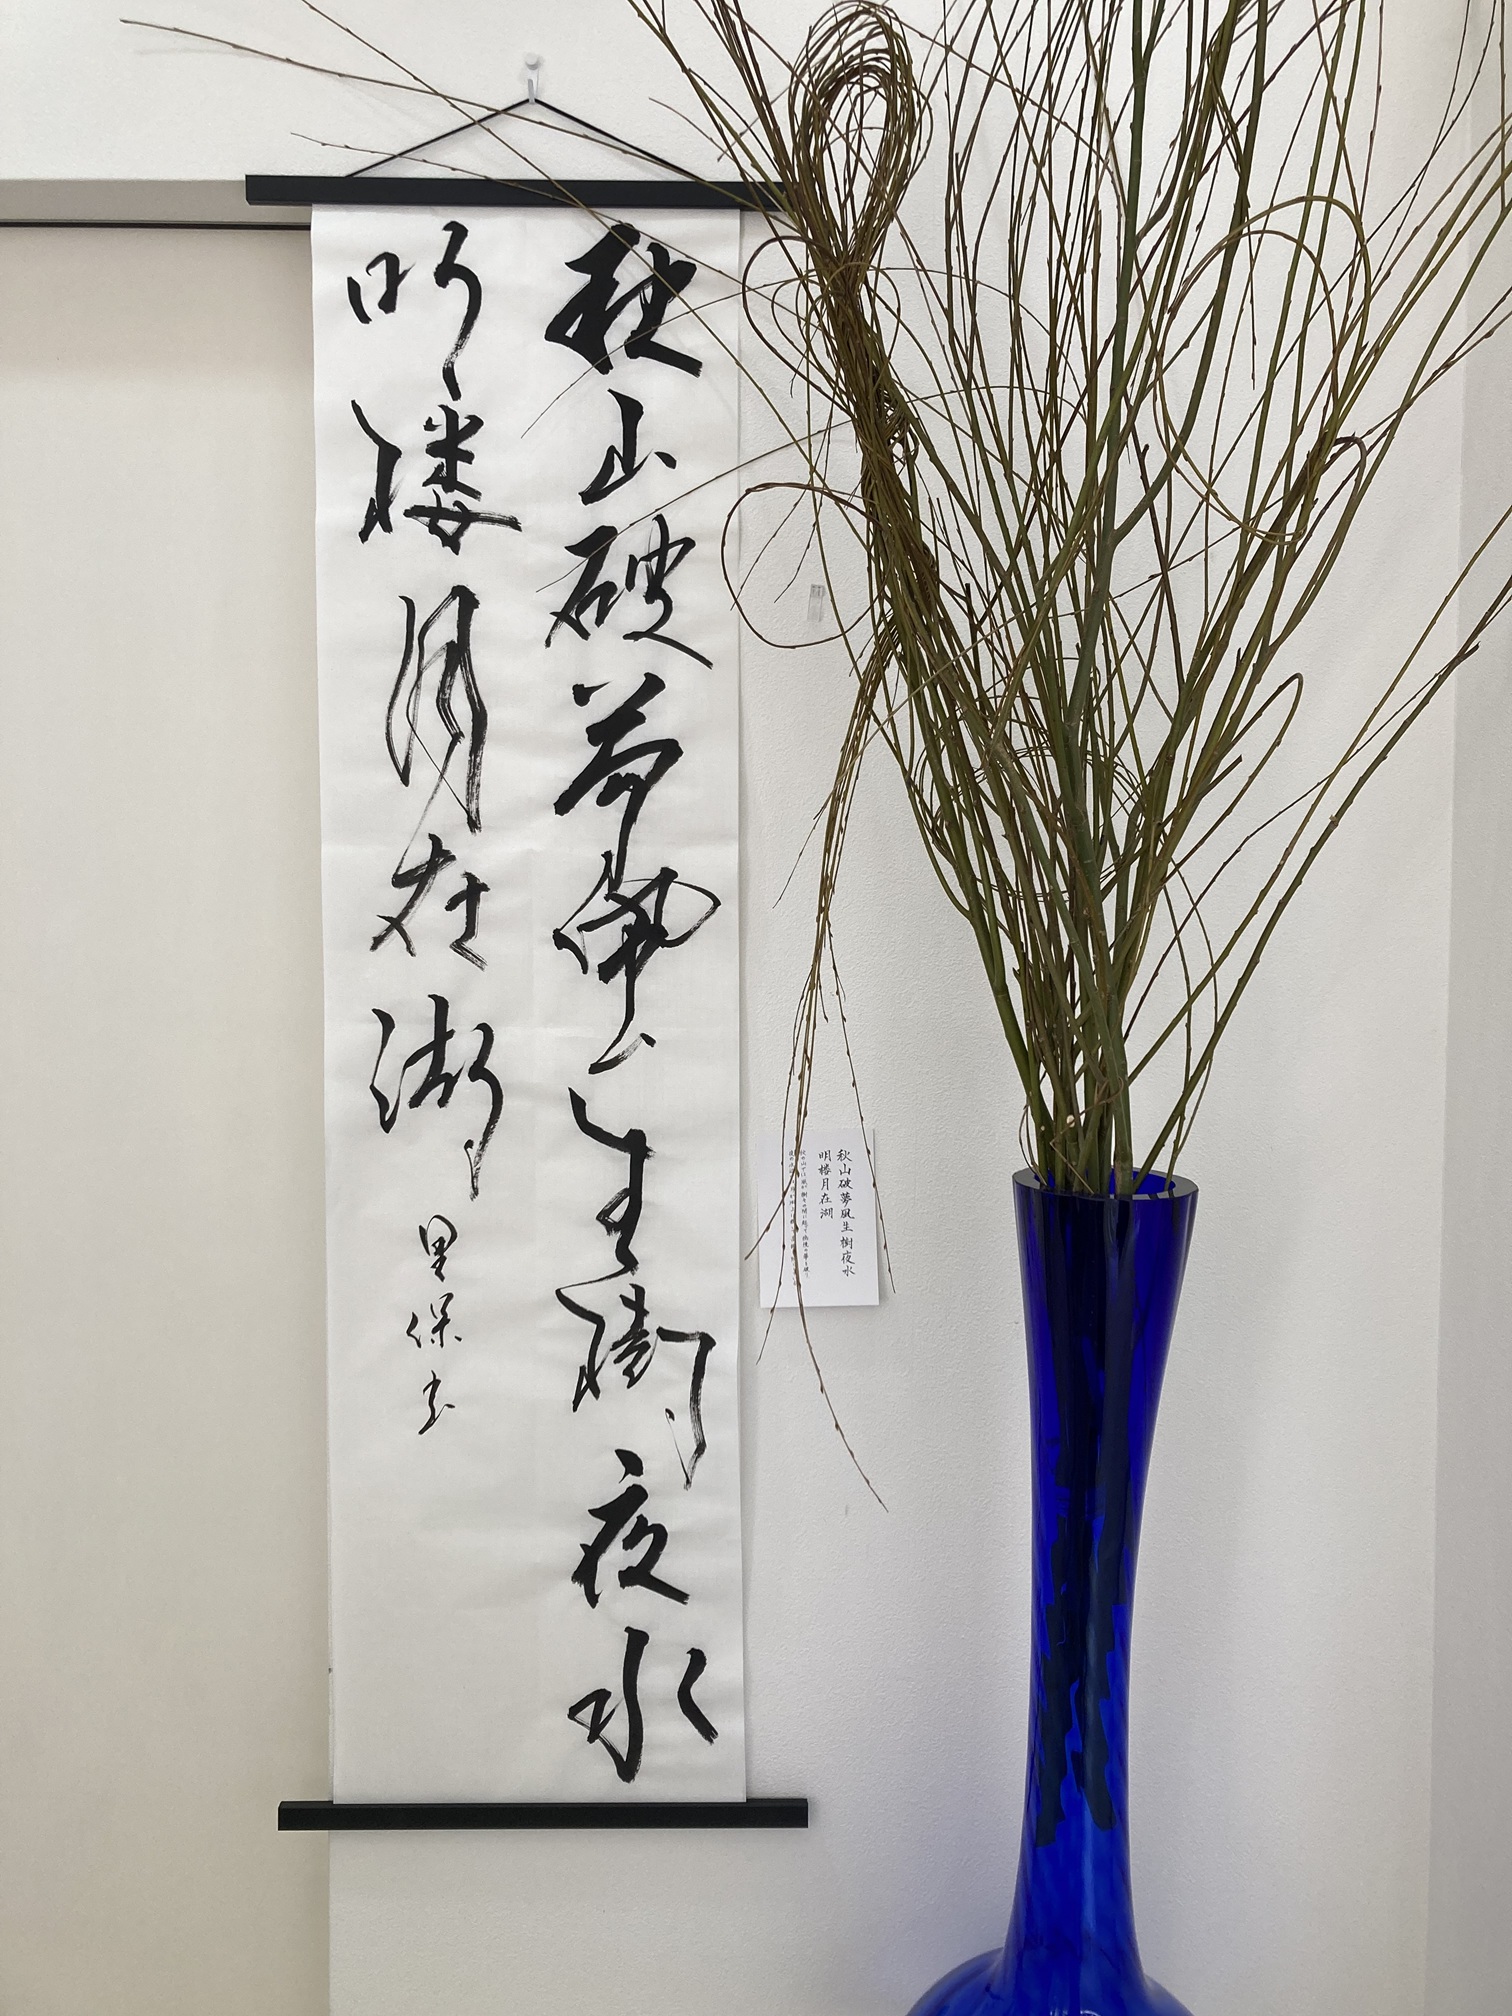 秋山破夢風生樹夜水
明楼月在湖
里保書
秋山破夢風生樹夜水
明楼月在湖